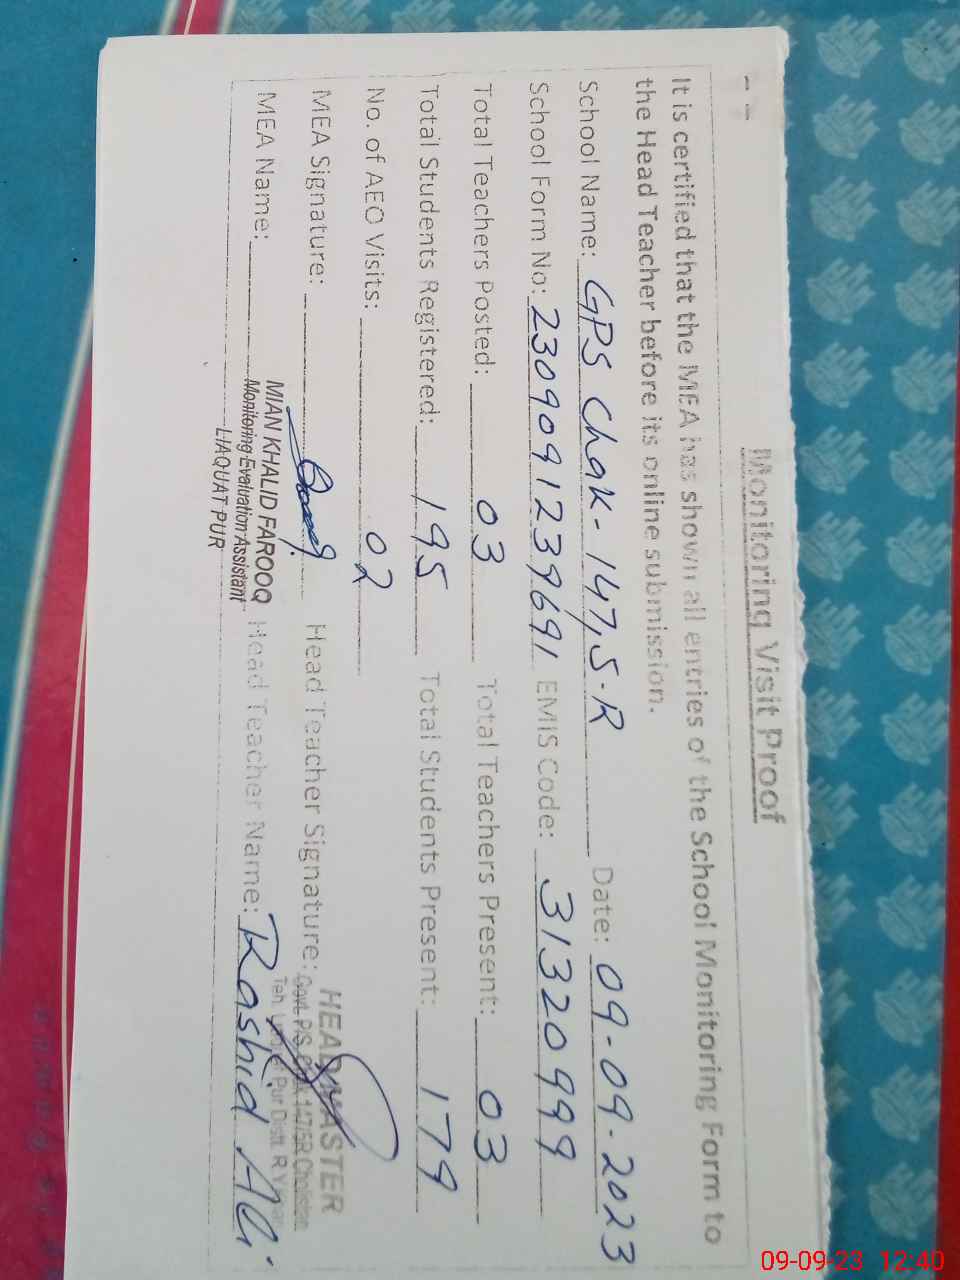 Monitoring Visit Proof
It is certified that the MEA has shown all entries of the School Monitoring Form to
the Head Teacher before its online submission.
School Name: GPS Chak-147,5-R Date: 09-09-2023
School Form No: 2309091239691 EMIS Code: 31320999
Total Teachers Posted: 03 Total Teachers Present: 03
Total Students Registered: 195 Total Students Present: 179
No. of AEO Visits: 02
MEA Signature: Head Teacher Signature:
HEADMASTER
Govt. P/S Chak 147/5R
MEA Name: MIAN KHALID FAROOQ Head Teacher Name: Rashid Ali
Monitoring Evaluation Assistant
LIAQUAT PUR
09-09-23 12:40